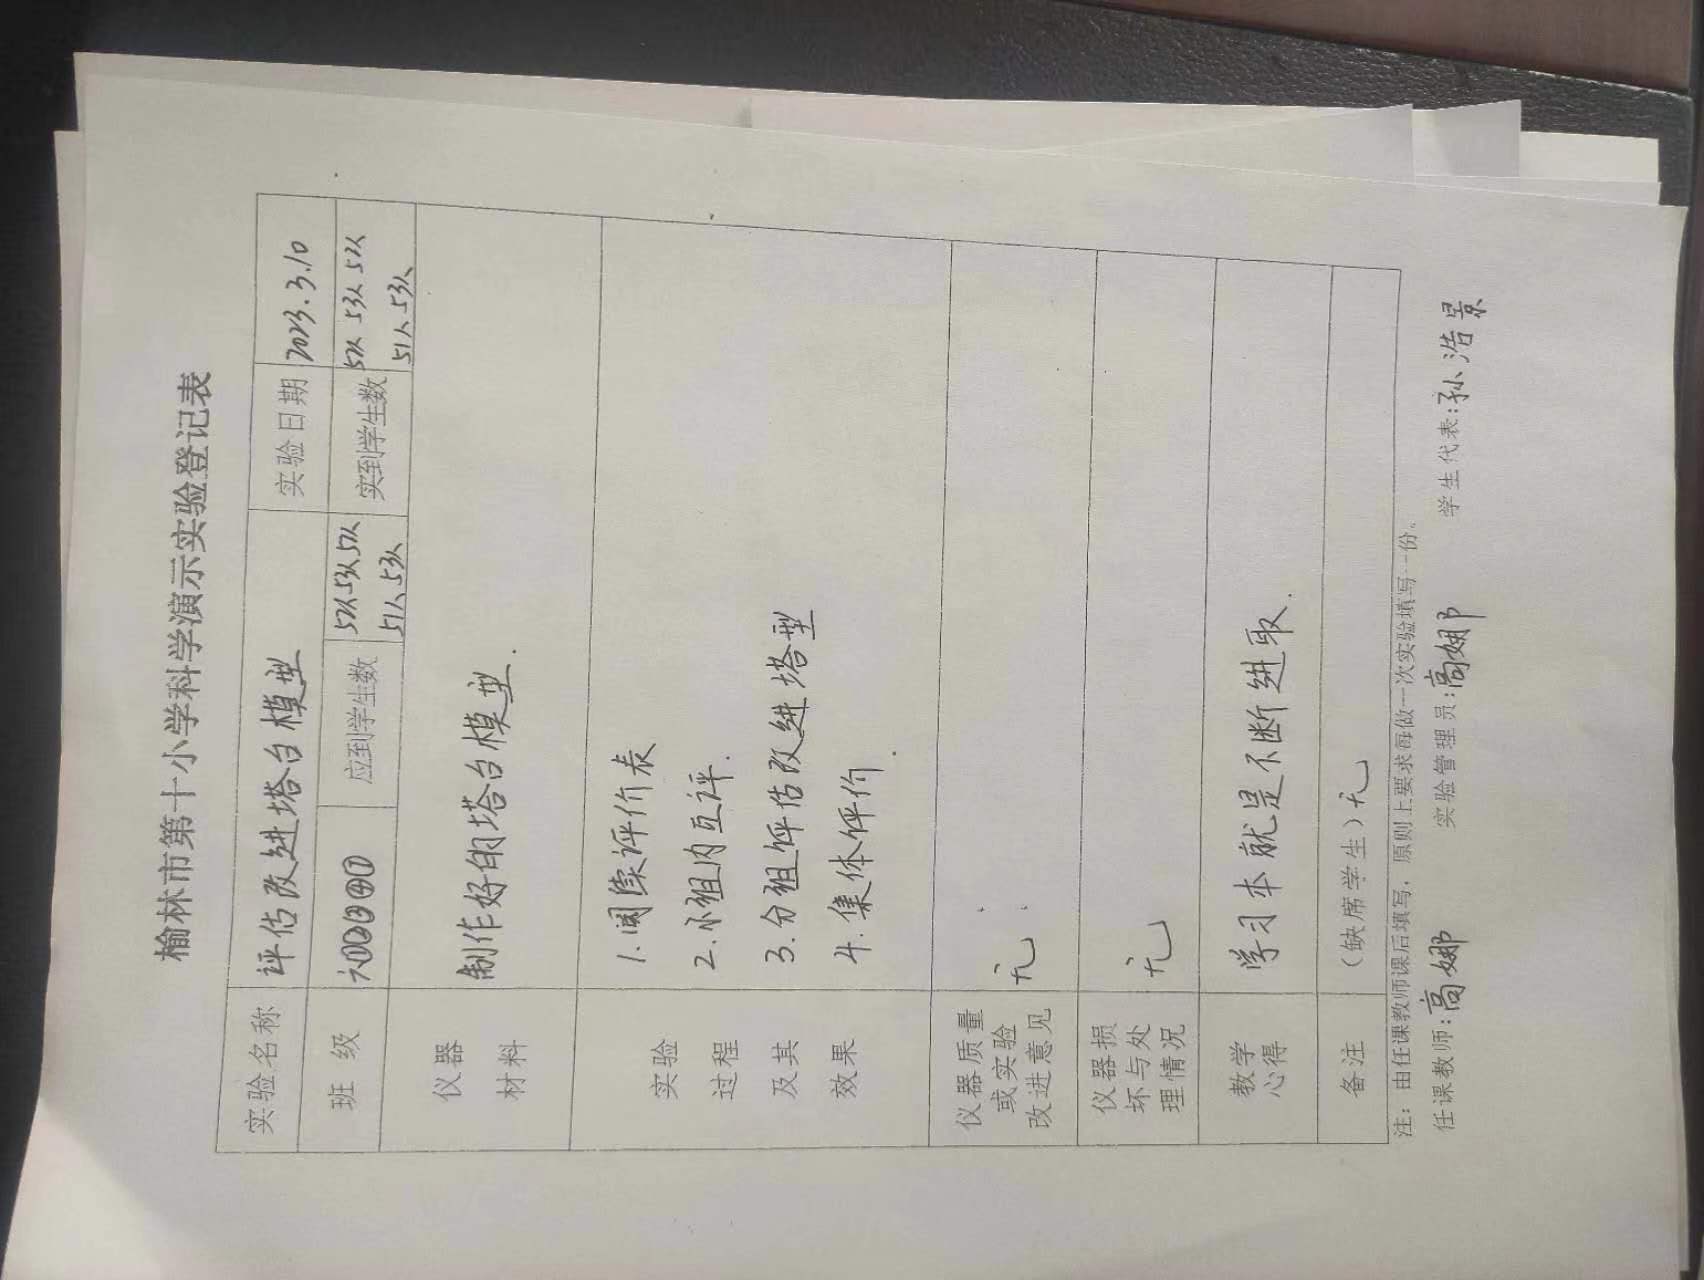 榆林市第十小学科学演示实验登记表
实验名称 评估改进塔台模型 实验日期 2023.3.10
班 级 六①②③④⑦ 应到学生数 52人 53人 52人 实到学生数 52人 53人 52人
51人 53人 51人 53人
仪器
材料
制作好的塔台模型.
实验
过程
及其
效果
1.阅读评价表
2.小组内互评.
3.分组评估改进塔型
4.集体评价
仪器质量
或实验
改进意见
无
仪器损
坏与处
理情况
无
教学
心得
学习本就是不断进取.
备注 (缺席学生)无
注：由任课教师课后填写，原则上要求每做一次实验填写一份。
任课教师:高娜 实验管理员:高娜 学生代表:孙浩景